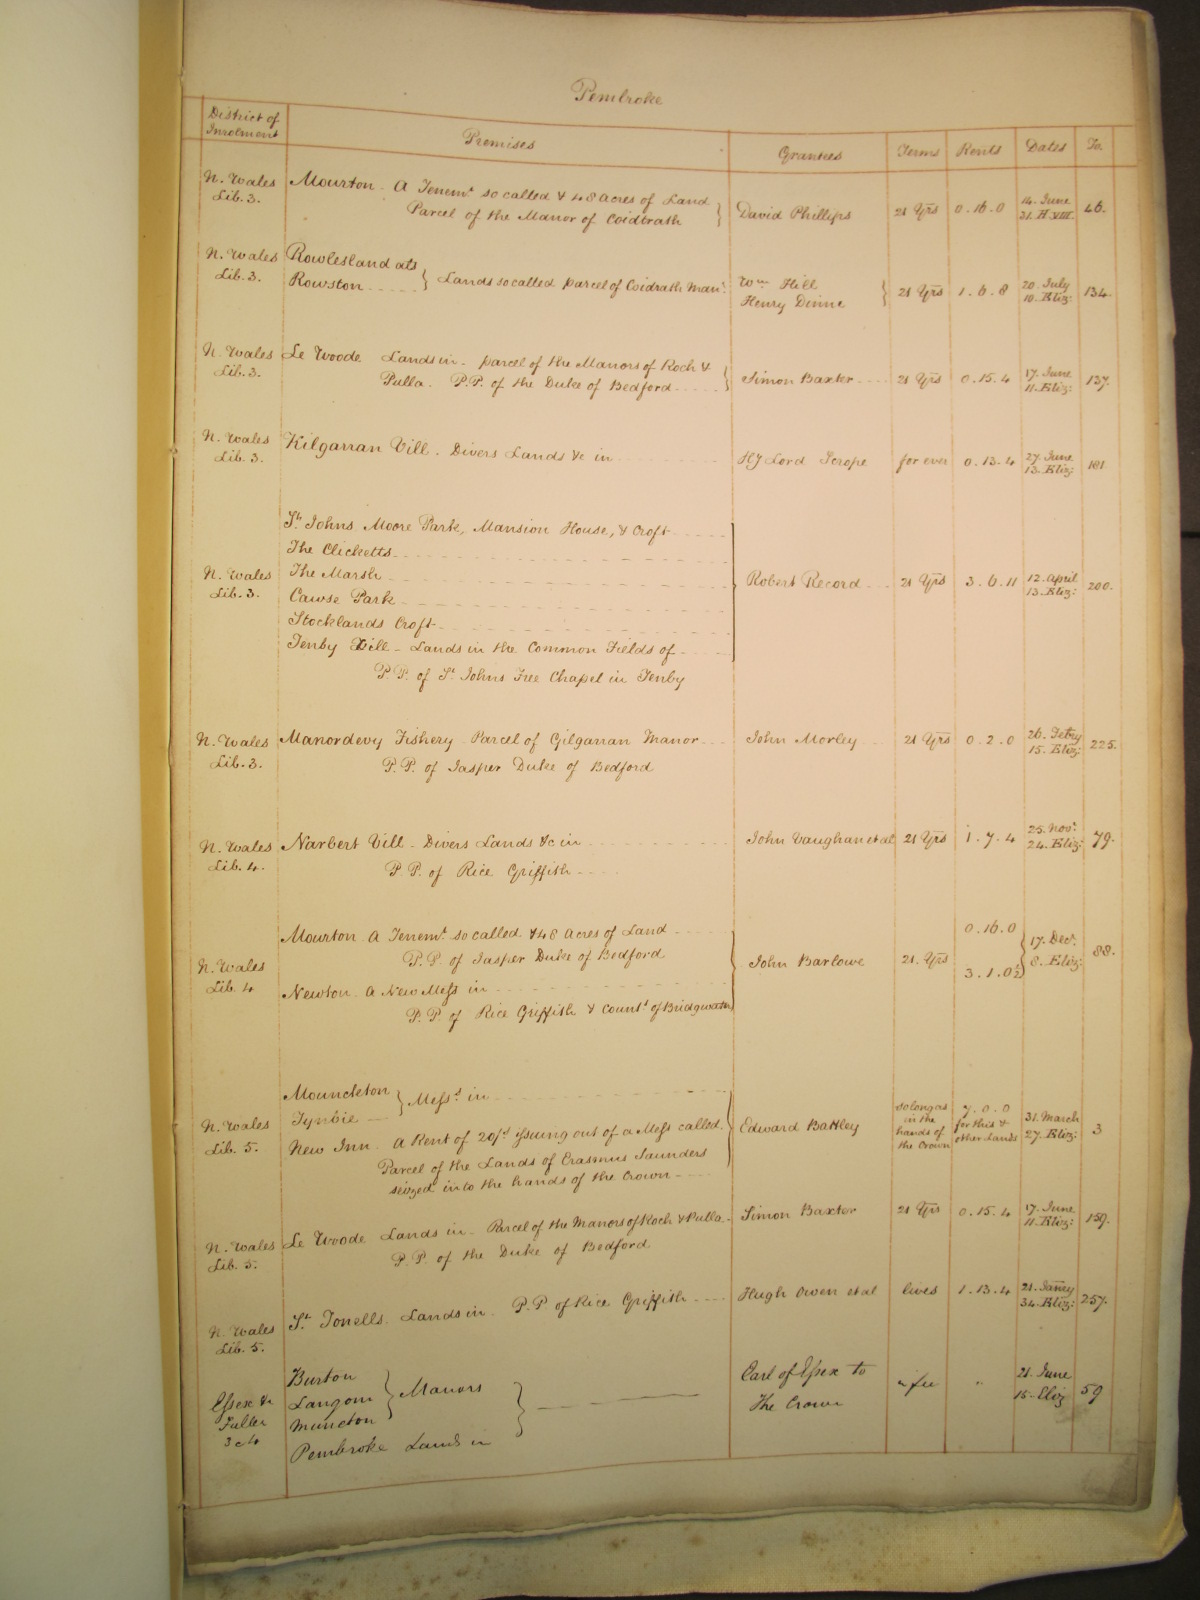 Pembroke
District of Inrolment | Premises | Grantees | Terms | Rents | Dates | Fo.
N. Wales Lib. 3. | Mourton - A Tenemt so called & 48 Acres of Land | David Phillips | 21 Yrs | 0 . 16 . 0 | 14. June 31. H VIII. | 46.
Parcel of the Manor of Coidtrath
N. Wales Lib. 3. | Rowlesland als | Wm Hill | 21 Yrs | 1 . 6 . 8 | 20. July 10. Eliz: | 134.
Rowston | Lands so called parcel of Coidrath Manr. | Henry Dinne
N. Wales Lib. 3. | Le Woode Lands in - parcel of the Manors of Roch & | Simon Baxter | 21 Yrs | 0 . 15 . 4 | 17. June 11. Eliz: | 137.
Pulla. P.P. of the Duke of Bedford
N. Wales Lib. 3. | Kilgarran Vill - Divers Lands &c in | Hy Lord Scrope | for ever | 0 . 13 . 4 | 27. June 13. Eliz: | 181
St. Johns Moore Park, Mansion House, & Croft
The Clicketts
N. Wales Lib. 3. | The Marsh | Robert Record | 21 Yrs | 3 . 6 . 11 | 12. April 13. Eliz: | 200.
Cawse Park
Stocklands Croft
Tenby Vill - Lands in the Common Fields of
P.P. of St. Johns Free Chapel in Tenby
N. Wales Lib. 3. | Manordevy Fishery - Parcel of Gilgarran Manor | John Morley | 21 Yrs | 0 . 2 . 0 | 26. Febry 15. Eliz: | 225.
P.P. of Jasper Duke of Bedford
N. Wales Lib. 4. | Narbert Vill - Divers Lands &c in | John Vaughan et al | 21 Yrs | 1 . 7 . 4 | 25. Novr. 24. Eliz: | 79.
P.P. of Rice Griffith
Mourton A Tenemt so called & 48 Acres of Land | 0 . 16 . 0
N. Wales Lib. 4 | P.P. of Jasper Duke of Bedford | John Barlowe | 21. Yrs | 17. Decr. 8. Eliz: | 88.
Newton A New Mess in | 3 . 1 . 0½
P.P. of Rice Griffith & Countt of Bridgwater
Mounckton
Tynbie | Messs in
N. Wales Lib. 5. | New Inn A Rent of 20/s issuing out of a Mess called | Edward Battley | so long as in the hands of the Crown | 7 . 0 . 0 for this & other Lands | 31. March 27. Eliz: | 3
Parcel of the Lands of Erasmus Saunders
seized into the hands of the Crown
N. Wales Lib. 5. | Le Woode Lands in - Parcel of the Manors of Roch & Pulla | Simon Baxter | 21 Yrs | 0 . 15 . 4 | 17. June 11. Eliz: | 159.
P.P. of the Duke of Bedford
N. Wales Lib. 5. | St. Tonells. Lands in. P.P. of Rice Griffith | Hugh Owen et al | lives | 1 . 13 . 4 | 21. Janry 34. Eliz: | 257.
Burton
Essex &c Fuller 3 | Langom | Manors | Earl of Essex to The Crown | in fee | " | 21. June 15. Eliz | 59
Muncton
Pembroke Lands in